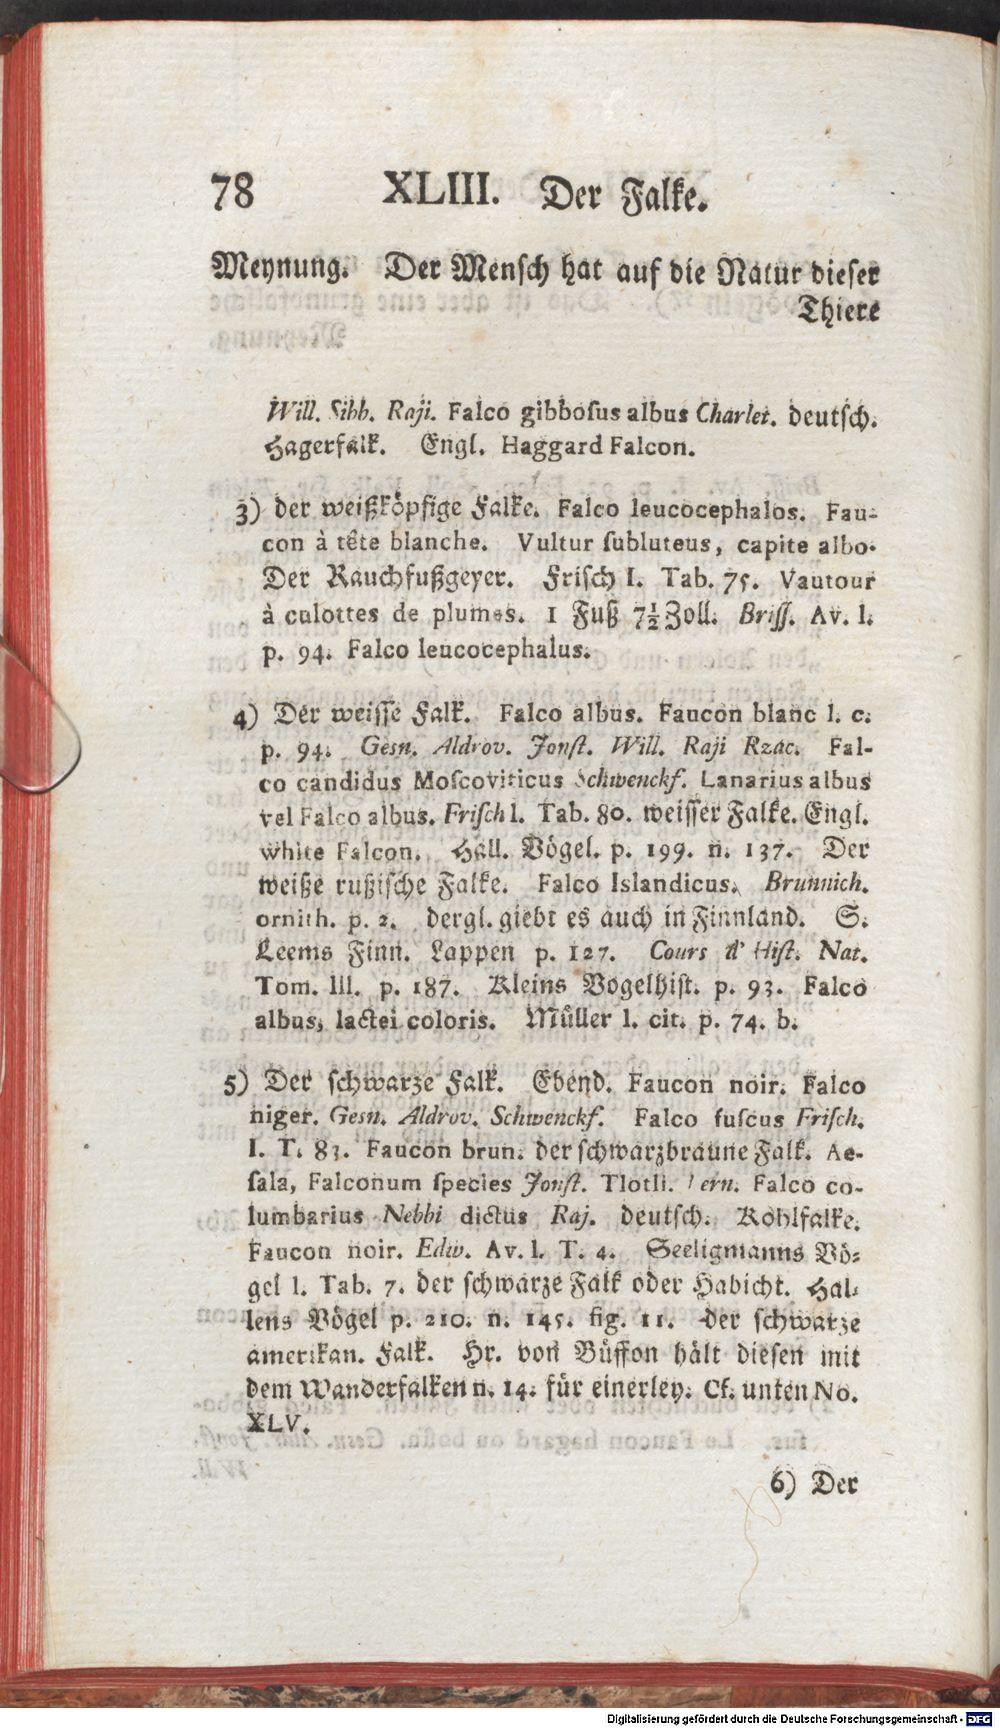 78 XLIII. Der Falke.
Meynung. Der Mensch hat auf die Natur dieser
Thiere
Will. Sibb. Raji. Falco gibboſus albus Charlet. deutſch.
Hagerfalk. Engl. Haggard Falcon.
3) der weißköpfige Falke. Falco leucocephalos. Fau-
con à tête blanche. Vultur ſubluteus, capite albo.
Der Rauchfußgeyer. Friſch I. Tab. 75. Vautour
à culottes de plumes. 1 Fuß 7½ Zoll. Briſſ. Av. I.
p. 94. Falco leucocephalus.
4) Der weiſſe Falk. Falco albus. Faucon blanc l. c.
p. 94. Gesn. Aldrov. Jonſt. Will. Raji Rzac. Fal-
co candidus Moſcoviticus Schwenckf. Lanarius albus
vel Falco albus. Friſch I. Tab. 80. weiſſer Falke. Engl.
white Falcon. Hall. Vögel. p. 199. n. 137. Der
weiße rußiſche Falke. Falco Islandicus. Brunnich.
ornith. p. 2. dergl. giebt es auch in Finnland. S.
Leems Finn. Lappen p. 127. Cours d' Hiſt. Nat.
Tom. III. p. 187. Kleins Vogelhiſt. p. 93. Falco
albus, lactei coloris. Müller l. cit. p. 74. b.
5) Der ſchwarze Falk. Ebend. Faucon noir. Falco
niger. Gesn. Aldrov. Schwenckf. Falco fuſcus Friſch.
I. T. 83. Faucon brun. der ſchwarzbraune Falk. Ae-
ſala, Falconum ſpecies Jonſt. Tlotli. Fern. Falco co-
lumbarius Nebbi dictus Raj. deutſch. Kohlfalke.
Faucon noir. Edw. Av. I. T. 4. Seeligmanns Vö-
gel I. Tab. 7. der ſchwarze Falk oder Habicht. Hal-
lens Vögel p. 210. n. 145. fig. 11. der ſchwarze
amerikan. Falk. Hr. von Büffon hält dieſen mit
dem Wanderfalken n. 14. für einerley. Cf. unten No.
XLV.
6) Der
Digitalisierung gefördert durch die Deutsche Forschungsgemeinschaft - DFG